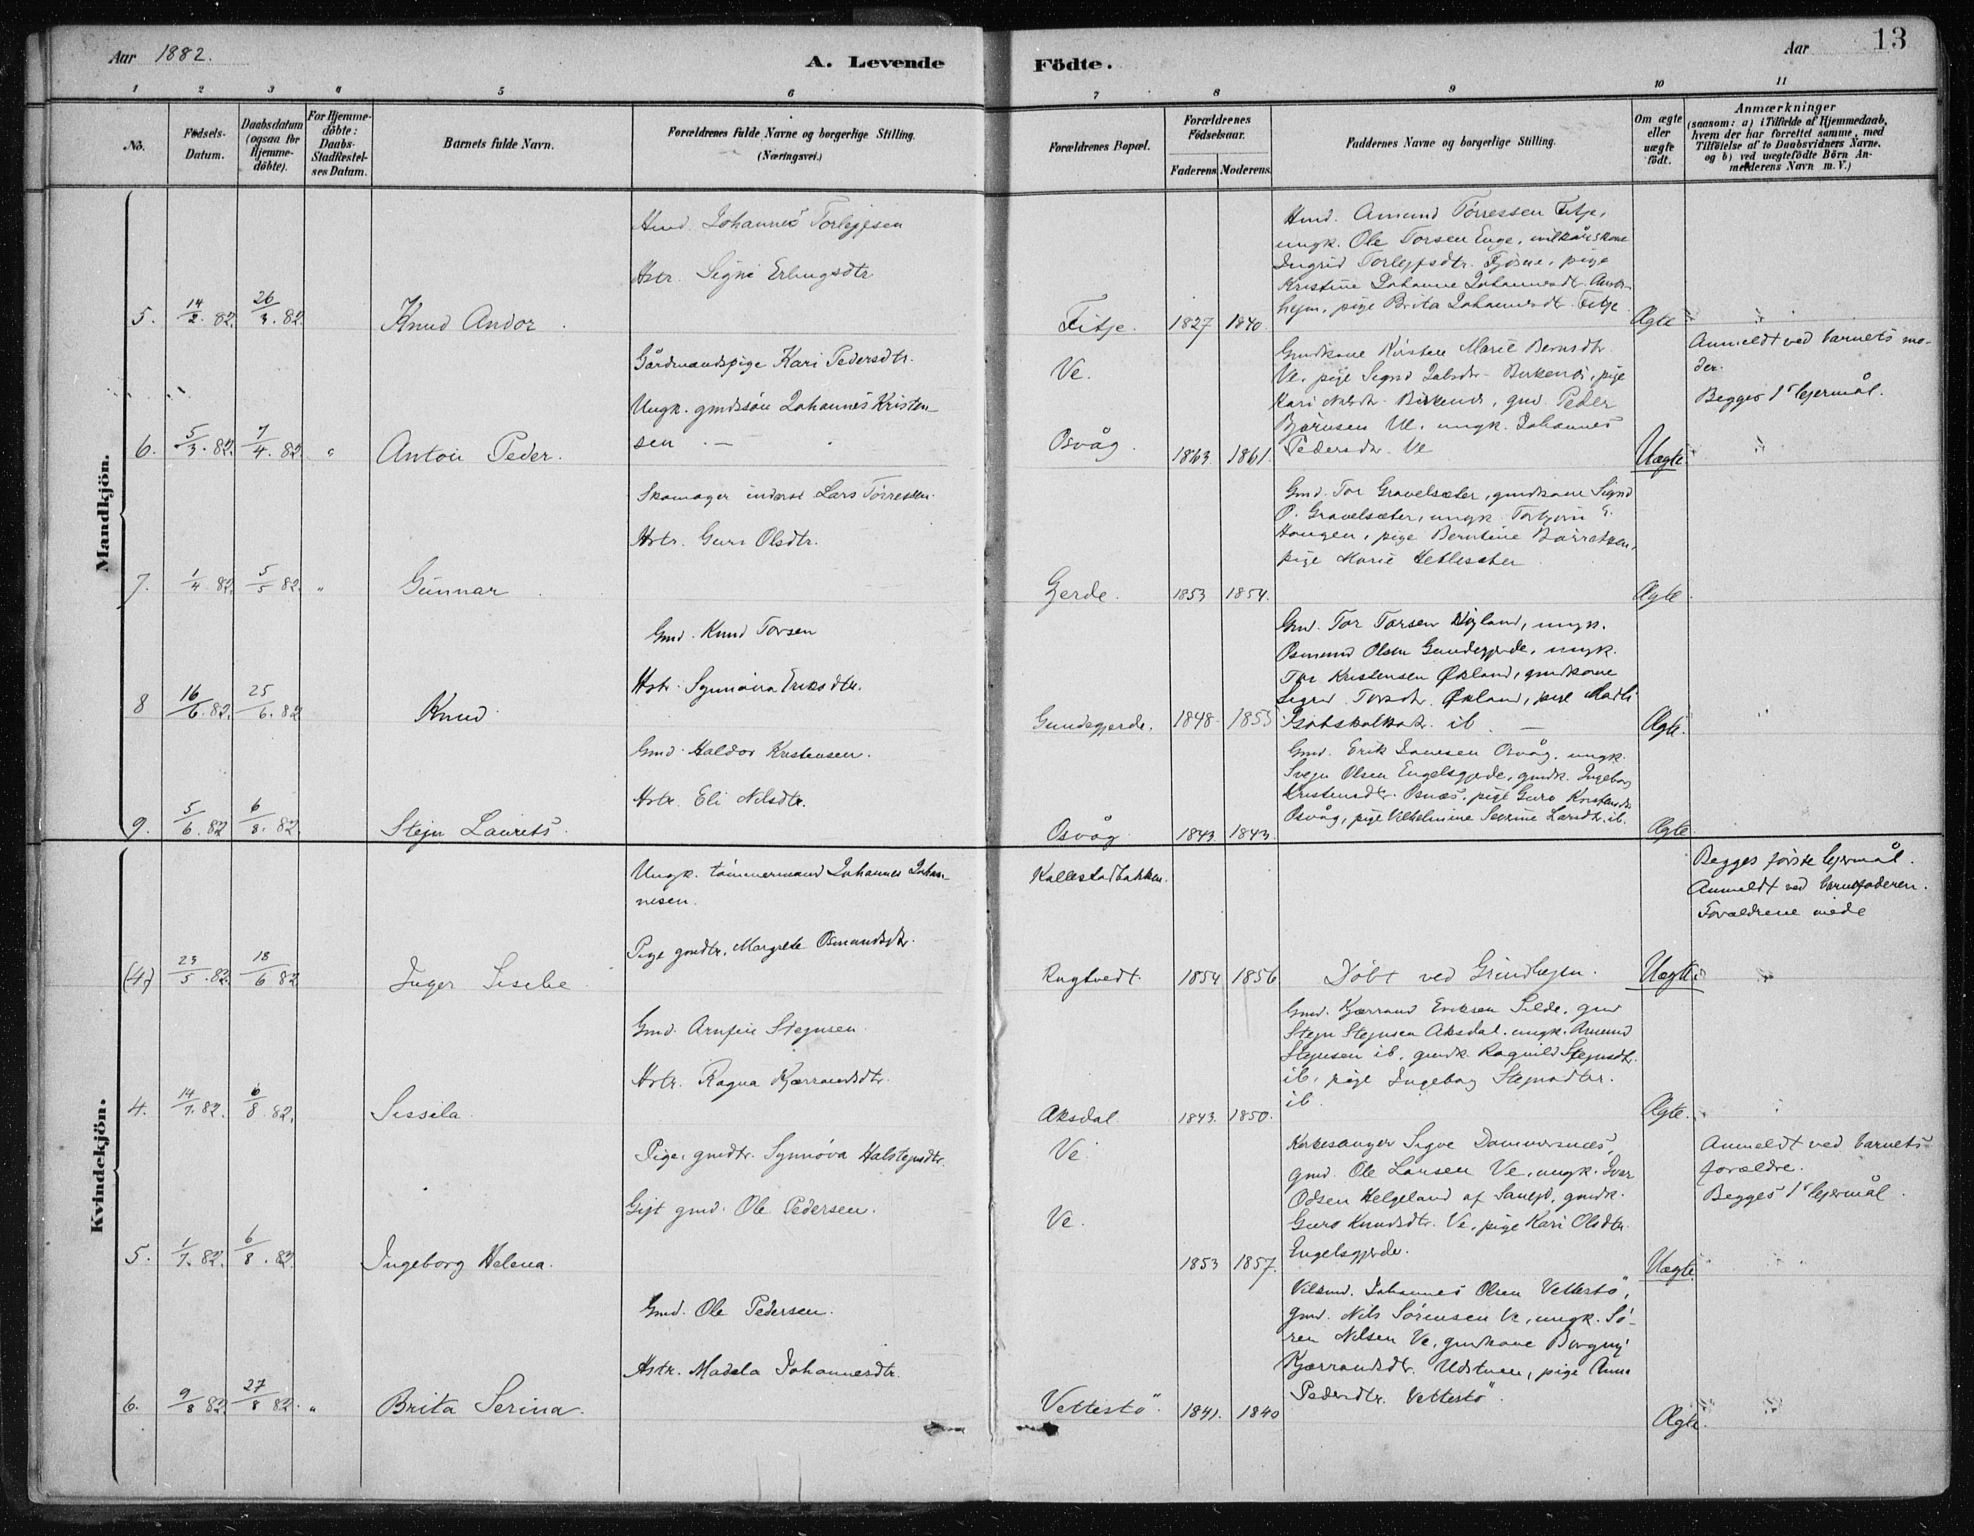 Aar 1882.
A. Levende Födte.
Aar
13
1
2
3
4
5
6
7
8
9
10
11
No.
Fødsels-Datum.
Daabsdatum (ogsaa for Hjemme-döbte).
For Hjemme-döbte: Daabs-Stadfæstel-ses Datum.
Barnets fulde Navn.
Forældrenes fulde Navne og borgerlige Stilling.
(Næringsvei.)
Forældrenes Bopæl.
Forældrenes Födselsaar.
Faderens
Moderens
Faddernes Navne og borgerlige Stilling.
Om ægte eller uægte födt.
Anmærkninger
(saasom: a) i Tilfælde af Hjemmedaab,
hvem der har forrettet samme, med
Tilföielse af to Daabsvidners Navne.
og b) ved uægtefödte Börn An-
melderens Navn m.V.)
Mandkjön.
5. 14/2.82. 26/3.82 Knud Andor.
Hmd. Johannes Torlejfsen
Hstr. Signi Erlingsdtr
Fitje. 1827 1840
Hmd. Amund Tørressen Fitje,
ungk. Ole Torsen Enge, vilkårskone
Ingrid Torlejfsdtr. Fjøsne, pige
Kristine Johanne Johannesdt.
hejm, pige Brita Johannesdt. Fitje
Ægte
6. 5/3.82. 7/4.82. " Anton Peder.
Gårdmandspige Kari Pedersdtr.
Ungk. gmdssøn Johannes Kristen-
sen. —
Ve.
Osvåg 1863. 1861.
Gmdkone Kirsten Marie Berndtr.
Ve, pige Signi Jakobdtr. Birkenes, pige
Kari Nilsdtr. Birkenes, gmd. Peder
Bjørnsen Ve, ungk. Johannes
Pedersdtr. Ve
Uægte
Anmeldt ved barnets mo-
der.
Begges 1ste lejermål.
7. 1/4.82. 5/5.82. " Gunnar.
Skomager inderst Lars Tørressen.
Hstr. Guri Olsdtr.
Gjerde. 1853 1854.
Gmd. Tor Gravelsæter, gmdkone Signi
O. Gravelsæter, ungk. Torbjørn E.
Haugen, pige Berntine
pige Marie Hetlesæter
Ægte.
8 16/6.82. 25/6.82 Knud
Gmd. Knud Torsen
Hstr. Synnøva Eriksdtr.
Gundegjerde. 1848. 1855
Gmd. Tor Torsen Vigland, ungk.
Osmund Olsen Gundegjerde, ungk.
Tor Kristensen Økland, gmdkone
Sigrid Torsdtr. Økland, pige Madli
ib. —
Ægte.
9. 5/6.82 6/8.82. Stejn Laurets.
Gmd. Haldor Kristensen.
Hstr. Eli Nilsdtr.
Osvåg 1843. 1843.
Gmd. Erik Jansen Osvåg, ungk.
Svejn Olsen Engelsgjerde, gmdk. Ingeborg
Kristensdtr. Osnæs, pige Guro Kristensdtr.
Osvåg, pige Vilhelmine Severine Larsdtr. ib.
Ægte
Kvindekjön.
(4) 23/5.82. 18/6 82 Inger Sisilie
Ungk. tømmermand Johannes Johan-
nesen.
Pige gmdtr. Margrete Osmundsdtr.
Kallestadbakken.
Ragtvedt. 1854 1856
Døbt ved Grindhejm.
Uægte
Begges første lejermål.
Anmeldt ved barnefaderen.
Forældrene viede
4. 14/7.82. 6/8 82. Sissela.
Gmd. Arnfin Stejnsen.
Hstr. Ragna Kjærrandsdtr.
Aksdal 1843. 1850.
Gmd. Kjærrand Eriksen Silde, gmd
Stejn Stejnsen Aksdal. ungk. Amund
Stejnsen ib, gmdk. Ragnild Stejnsdtr.
ib, pige Ingeborg Stejnsdtr.
ib.
Ægte.
5. 1/7.82. 6/8.82. Ingeborg Helena.
Pige, gmdtr. Synnøva Halstejnsdtr.
Gift gmd. Ole Pedersen.
Ve.
Ve. 1853 1857.
Kirkesanger Sigve Dommersnæs,
gmd. Ole Larsen Ve, ungk. Ivar
Odsen Helgeland af Sauejd, gmdk.
Guro Knudsdtr. Ve, pige Kari Olsdtr.
Engelsgjerde.
Uægte.
Anmeldt ved barnets
forældre.
Begges 1ste lejermål.
6. 9/8 82 27/8 82. " Brita Serina.
Gmd. Ole Pedersen.
Hstr. Madela Johannesdtr.
Vettestö. 1841. 1840
Vilkmd. Johannes Olsen Vettestö,
gmd. Nils Sørensen Ve, ungk. Sö-
ren Nilsen Ve, gmdkone Borgny
Kjærrandsdtr. Udstuen, pige Anna
Pedersdtr. Vettestö.
Ægte.